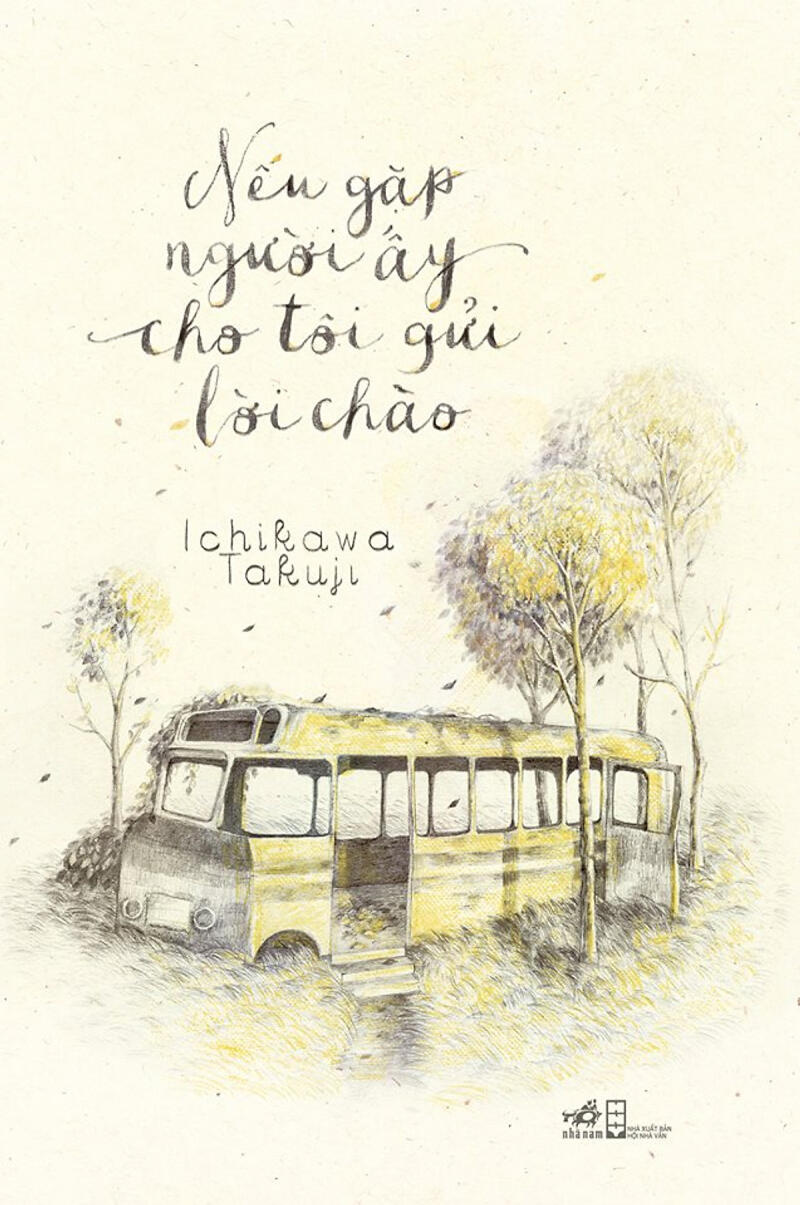 Nếu gặp
người ấy
cho tôi gửi
lời chào
Ichikawa
Takuji
nhã nam
NHÀ XUẤT BẢN
HỘI NHÀ VĂN